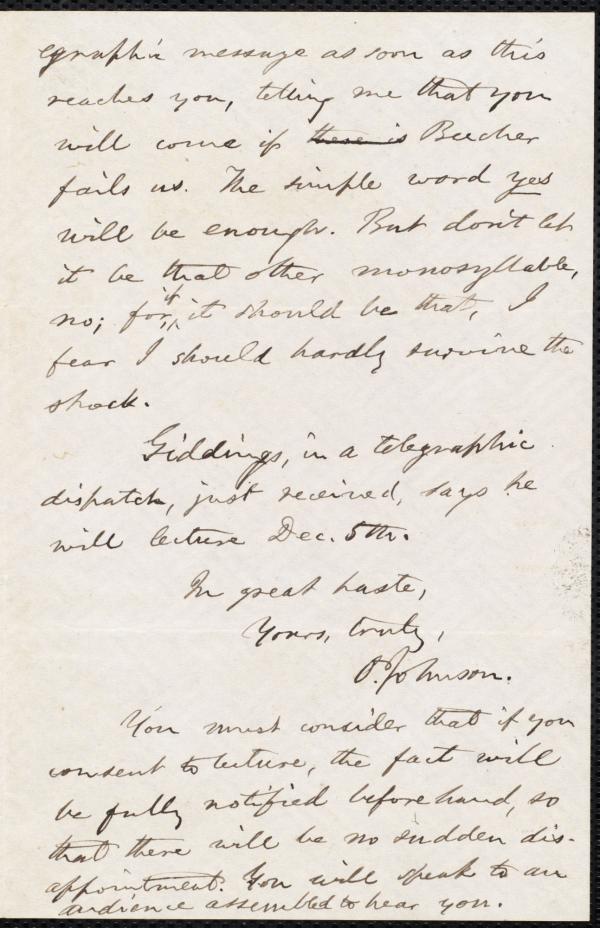 egraphic message as soon as this
reaches you, telling me that you
will come if there is Beecher
fails us. The simple word yes
will be enough. But don't let
it be that other monosyllable,
no; for, if it should be that, I
fear I should hardly survive the
shock.
Giddings, in a telegraphic
dispatch, just received, says he
will lecture Dec. 5th.
In great haste,
Yours, truly,
O. Johnson.
You must consider that if you
consent to lecture, the fact will
be fully notified beforehand, so
that there will be no sudden dis-
appointment. You will speak to an
audience assembled to hear you.